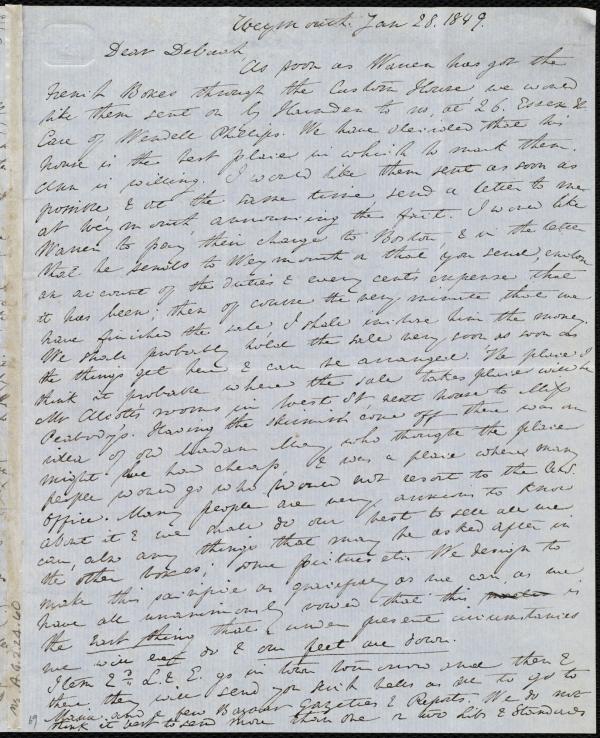 Weymouth. Jan 28. 1849.
Dear Deborah
As soon as Warren has got the
French Boxes through the Custom House we would
like them sent on by Harnden to us, at 26. Essex St
Care of Wendell Phillips. We have decided that his
house is the best place in which to mark them.
Ann is willing. I would like them sent as soon as
possible & at the same time, send a letter to me
at Weymouth announcing the fact. I would like
Warren to pay their charge to Boston, & in the letter
that he sends to Weymouth or that you send, enclose
an account of the duties & every cents expense that
it has been; then of course the very minute that we
have finished the sale I shall inclose him the money.
We shall probably hold the sale very soon as soon as
the things get here & can be arranged. The place I
think it probable where the sale takes place will be
Mr Alcotts rooms in West St next house to Miss
Peabody's. Having the skirmish come off there was an
idea of old Madam May, who thought the place
might be had cheap, & was a place where many
people would go who would not resort to the A.S.
Office. Many people are very anxious to know
about it & we shall do our best to sell all we
can, also any things that may be asked after in
the other boxes; some pictures etc. We design to
make this sacrifice as gracefully as we can, as we
have all unanimously vowed that this is
the last thing that under present circumstances
we will ever do & our feet are down.
Item 2nd L. & E. go in town tomorrow and then &
there they will send you such as are to go to
Maria and a few Bazaar Gazettes & Reports. We do not
think it best to send more than one or two Libs & Standards
19
Ms. A.9.2.24.60